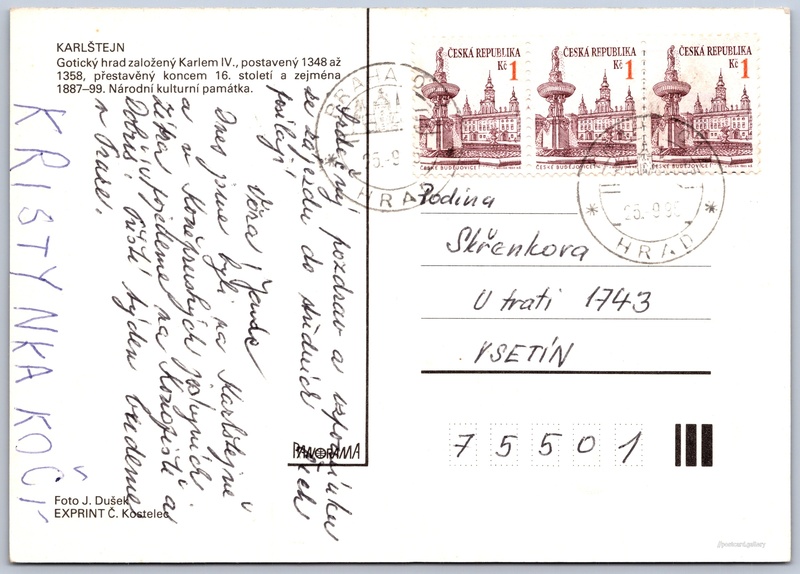 KARLŠTEJN
Gotický hrad založený Karlem IV., postavený 1348 až
1358, přestavěný koncem 16. století a zejména
1887–99. Národní kulturní památka.
Srdečný pozdrav a vzpomínku
ze zájezdu do středních Čech
posílají
Věra, Jarda
Dnes jsme byli na Karlštejně
a v Koněpruských jeskyních
zítra pojedeme na Konopiště a
Dobříš. Příští týden budeme
v Praze.
KRISTÝNKA KOČÍ
Foto J. Dušek
EXPRINT Č. Kostelec
PANORAMA
ČESKÁ REPUBLIKA
Kč 1
ČESKÉ BUDĚJOVICE
ČESKÁ REPUBLIKA
Kč 1
ČESKÉ BUDĚJOVICE
ČESKÁ REPUBLIKA
Kč 1
ČESKÉ BUDĚJOVICE
PRAHA
HRAD
HRAD
Rodina
Skřenkova
U trati 1743
VSETÍN
75501